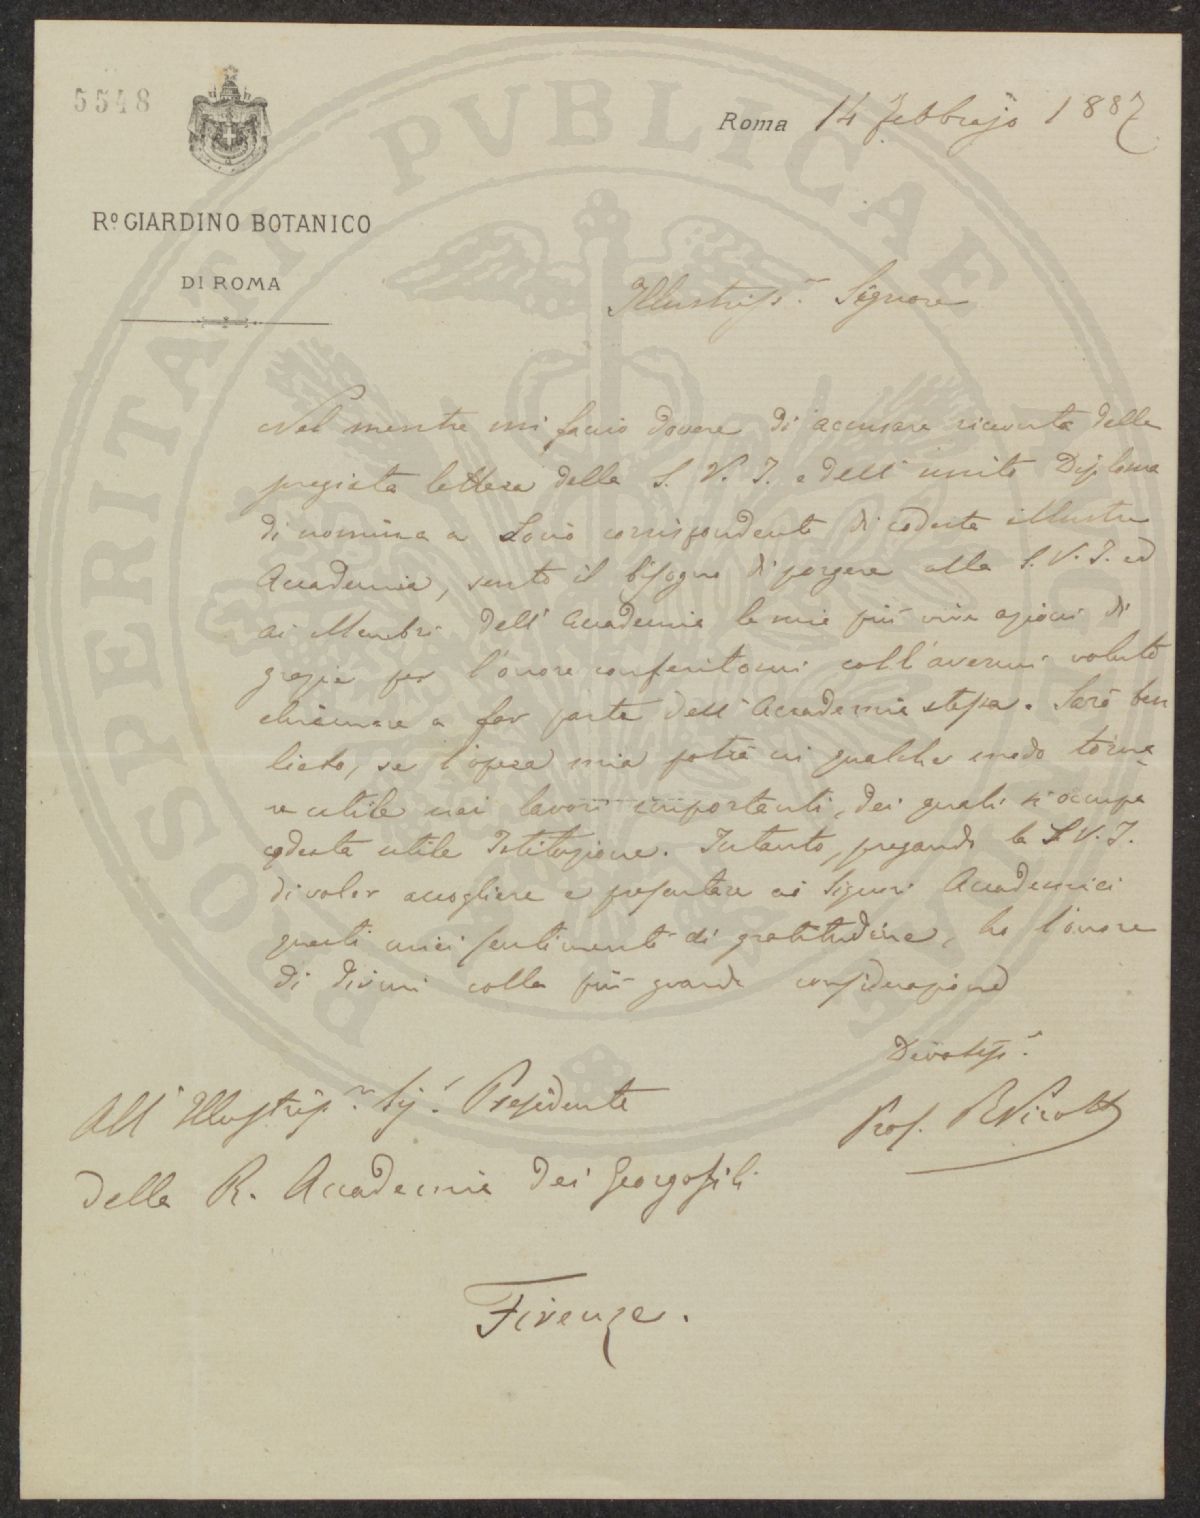 5548
Roma 14 Febbrajo 1887
Rº GIARDINO BOTANICO
DI ROMA
PROSPERITATI PVBLICAE
Illustriss.º Signore
Nel mentre mi facio dovere di accusare ricevuta della
pregiata lettera della S. V. I. e dell'unito Diploma
di nomina a Socio corrispondente di codesta illustre
Accademia, sento il bisogno di porgere alla S. V. I. ed
ai Membri dell'Accademia le mie più vive azioni di
grazie per l'onore conferitomi coll'avermi voluto
chiamare a far parte dell'Accademia stessa. Sarò ben
lieto, se l'opera mia potrà in qualche modo torna-
re utile nei lavori importanti, dei quali si occupa
codesta utile Istituzione. Intanto, pregando la S. V. I.
di voler accogliere e presentare ai Signori Accademici
questi miei sentimenti di gratitudine, ho l'onore
di dirmi colla più grande considerazione
Devotiss.º
Prof. R Pirotta
All'Illustriss.º Sig.r Presidente
della R. Accademia dei Georgofili
Firenze.